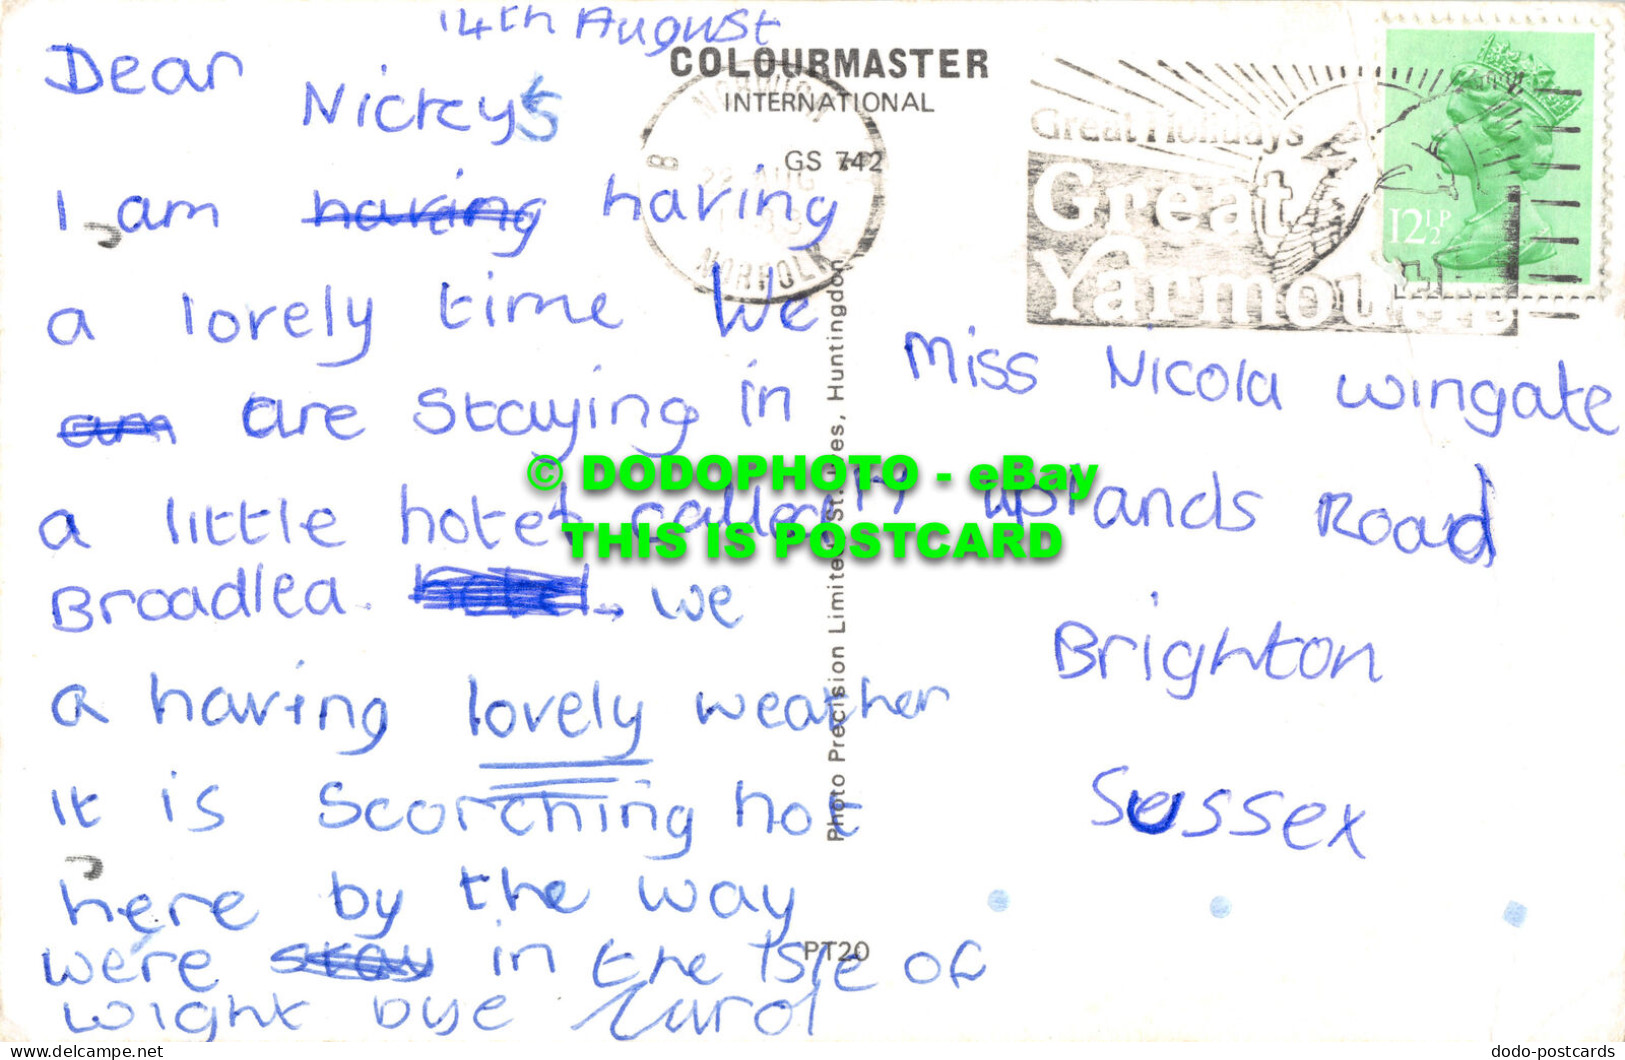 14th August
Dear
Nickys
I am having having
a lovely time We
am are staying in
a little hotel called
Broadlea. hotel. we
a having lovely weather
it is scorching hot
here by the way
were stay in the Isle of
wight bye Carol
COLOURMASTER
INTERNATIONAL
GS 742
NORWICH
B
22 AUG
NORFOLK
Great Holidays
Great
Yarmouth
12½P
Miss Nicola Wingate
uplands Road
Brighton
Sussex
Photo Precision Limited, St. Ives, Huntingdon
PT20
© DODOPHOTO - eBay
THIS IS POSTCARD
www.delcampe.net
dodo-postcards